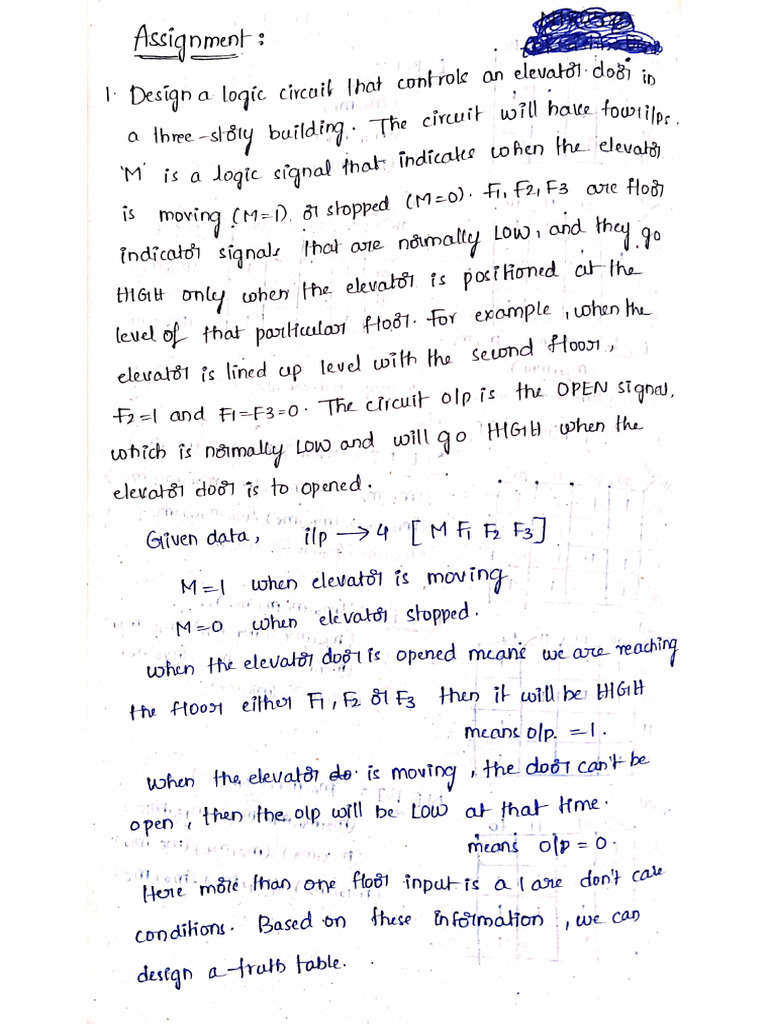 Assignment:
1. Design a logic circuit that controls an elevator door in
a three-story building. The circuit will have four i/ps.
'M' is a logic signal that indicates when the elevator
is moving (M=1) or stopped (M=0). F1, F2, F3 are floor
indicator signals that are normally LOW, and they go
HIGH only when the elevator is positioned at the
level of that particular floor. For example, when the
elevator is lined up level with the second floor,
F2=1 and F1=F3=0. The circuit o/p is the OPEN signal,
which is normally LOW and will go HIGH when the
elevator door is to opened.
Given data, i/p → 4 [M F1 F2 F3]
M=1 when elevator is moving
M=0 when elevator stopped.
when the elevator door is opened means we are reaching
the floor either F1, F2 or F3 then it will be HIGH
means o/p. =1.
When the elevator do is moving, the door can't be
open, then the o/p will be LOW at that time.
means o/p = 0.
Here more than one floor input is a 1 are don't care
conditions. Based on these information, we can
design a truth table.